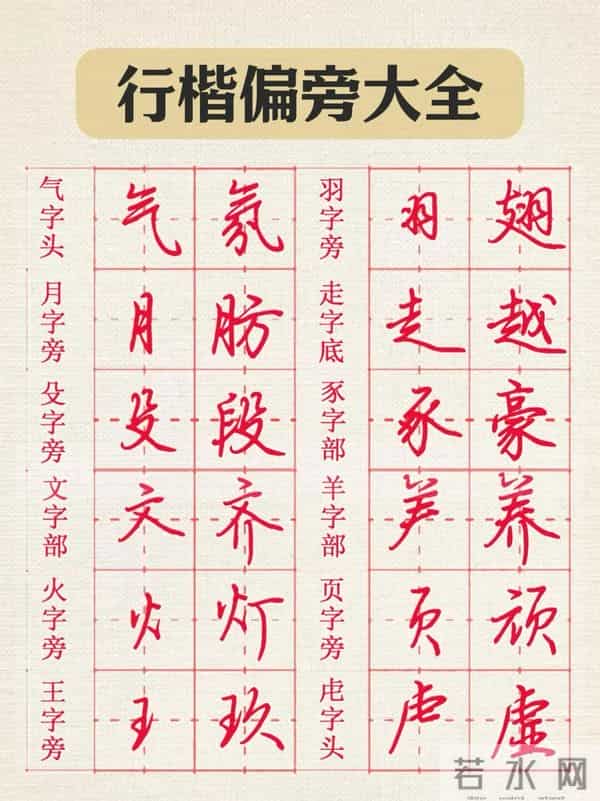 行楷偏旁大全
气字头 气 氛 羽字旁 羽 翅
月字旁 月 肪 走字底 走 越
殳字旁 殳 段 豕字部 豕 豪
文字部 文 齐 羊字部 𦍌 养
火字旁 火 灯 页字旁 页 顽
王字旁 王 玖 虍字头 虍 虚
若水网